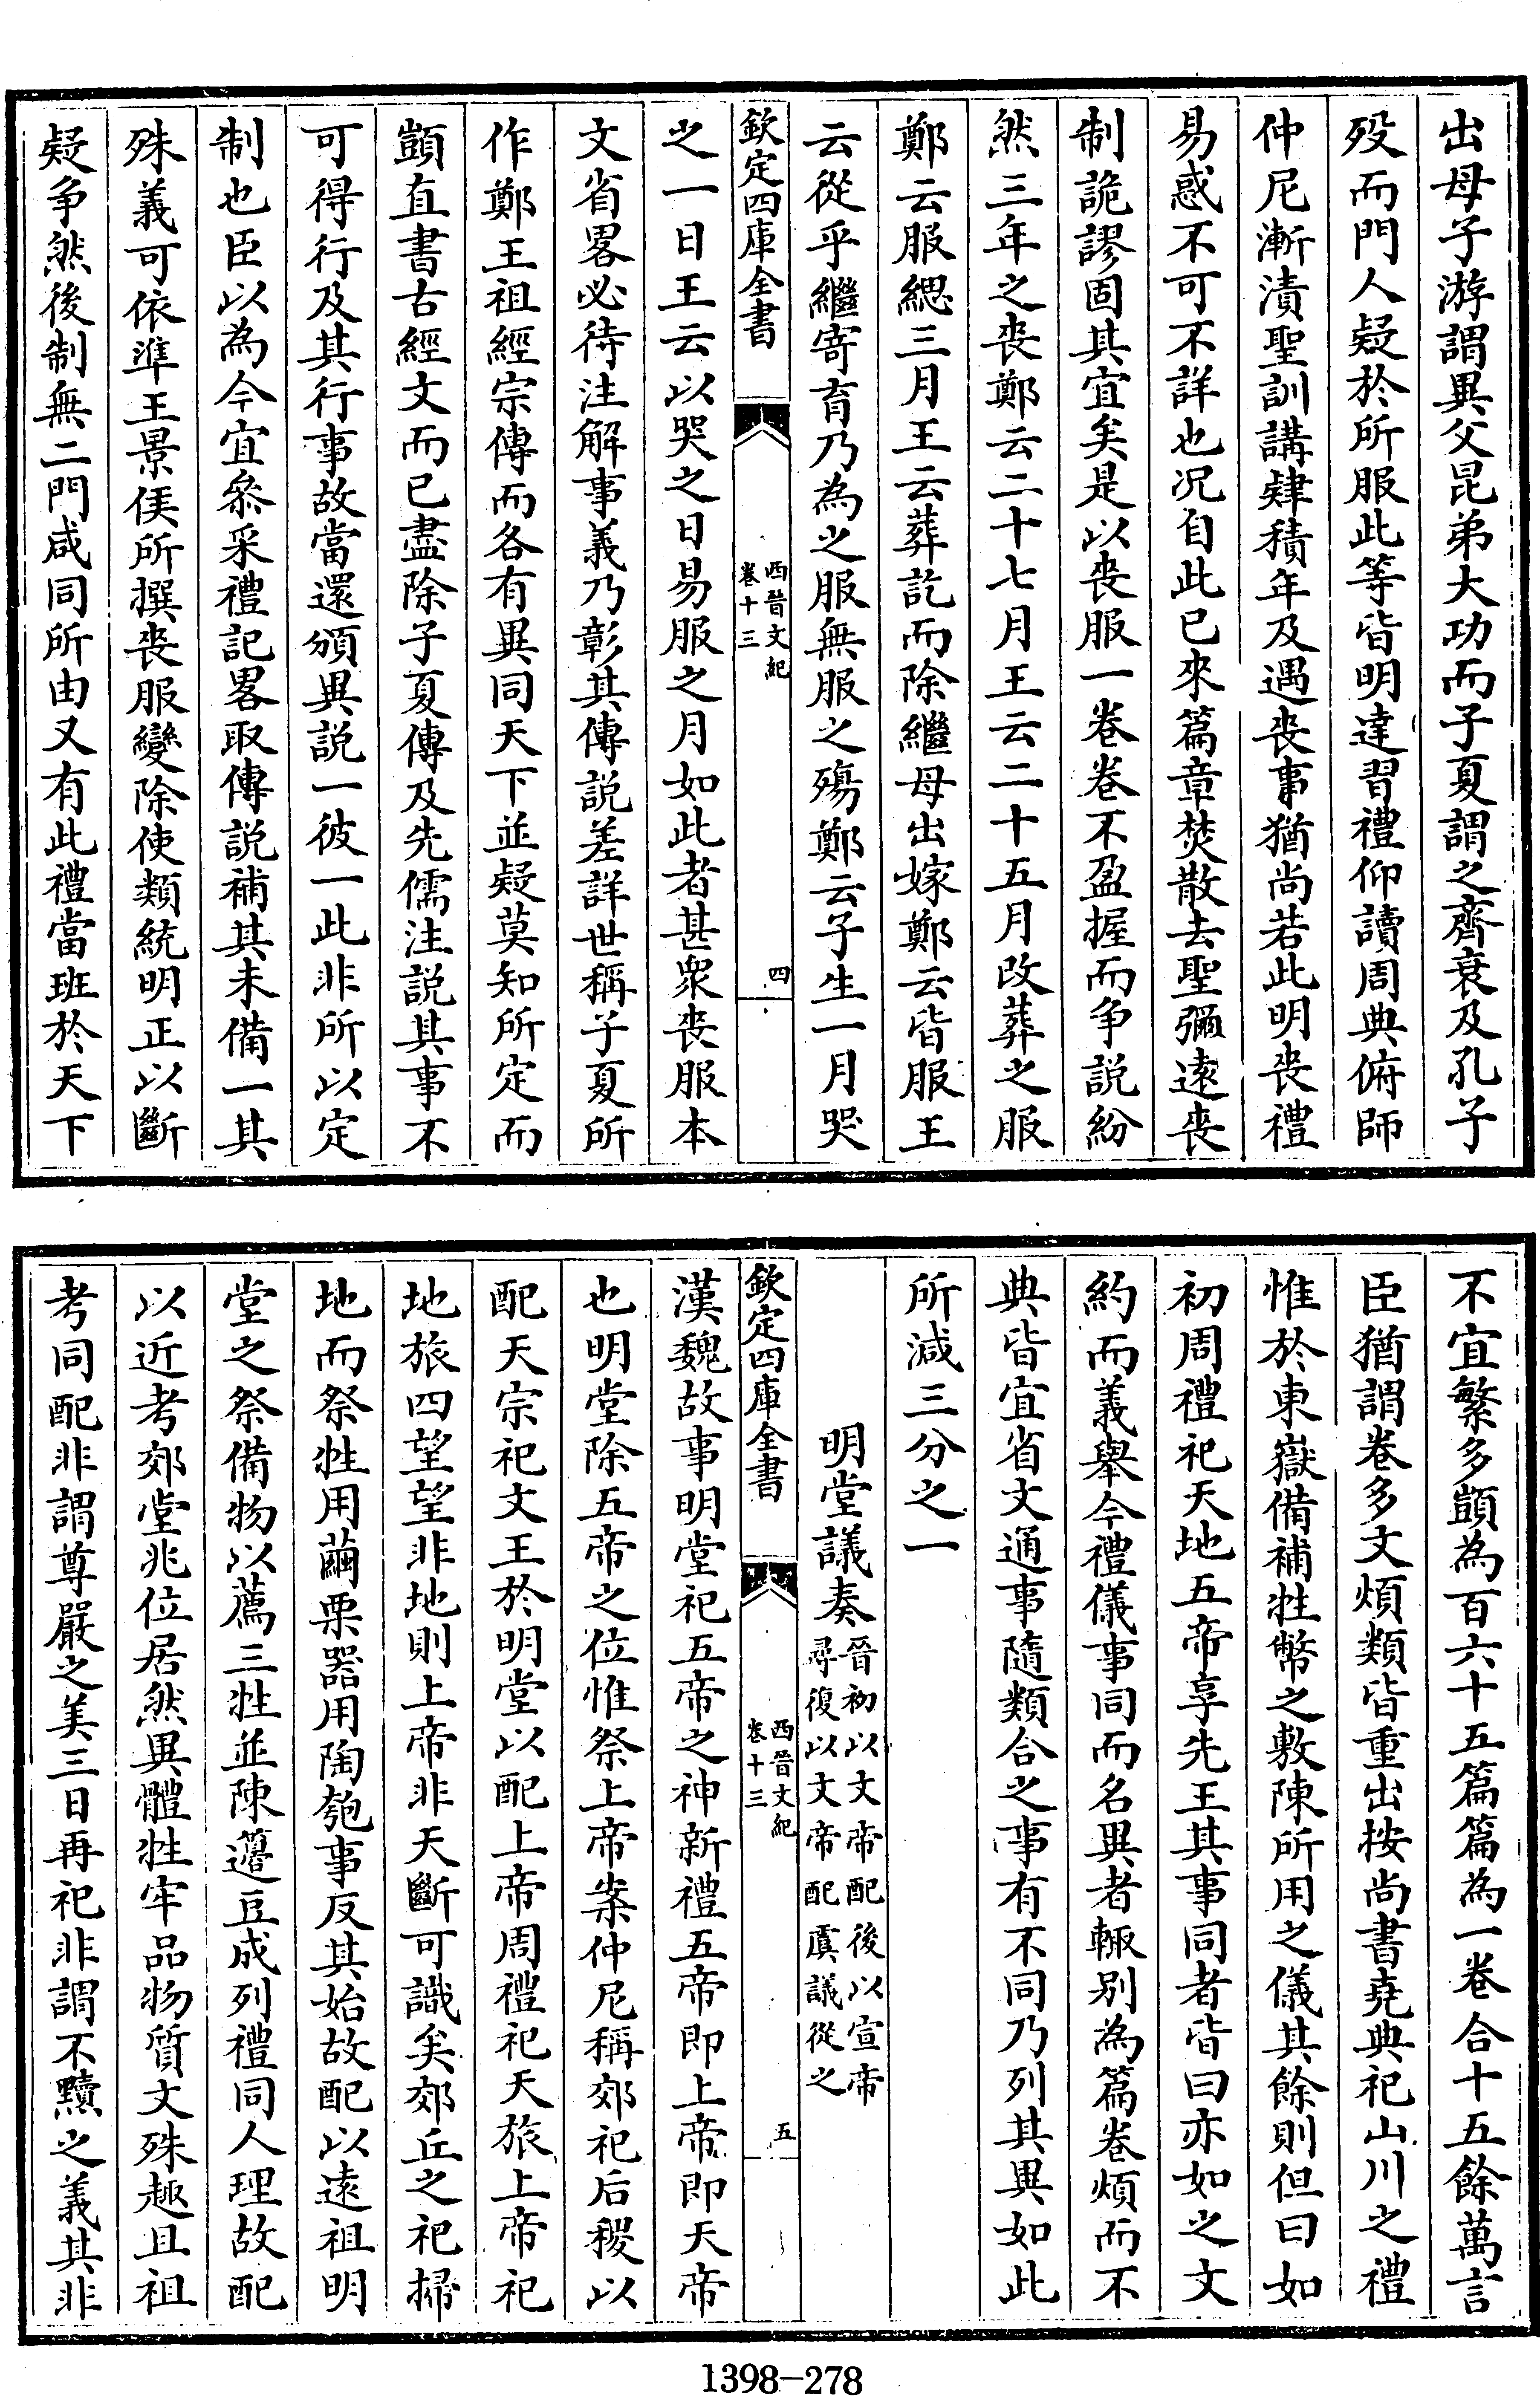 出母子游謂異父昆弟大功而子夏謂之齊衰及孔子
殁而門人疑於所服此等皆明達習禮仰讀周典俯師
仲尼漸漬聖訓講肄積年及遇喪事猶尚若此明喪禮
易惑不可不詳也况自此已來篇章焚散去聖彌逺喪
制詭謬固其宜矣是以喪服一卷卷不盈握而争説紛
然三年之喪鄭云二十七月王云二十五月改葬之服
鄭云服緦三月王云葬訖而除繼母出嫁鄭云皆服王
云從乎繼寄育乃為之服無服之殤鄭云子生一月哭
欽定四庫全書
西晉文紀
卷十三
四
之一日王云以哭之日易服之月如此者甚衆喪服本
文省畧必待注解事義乃彰其傳説差詳世稱子夏所
作鄭王祖經宗傳而各有異同天下並疑莫知所定而
顗直書古經文而已盡除子夏傳及先儒注説其事不
可得行及其行事故當還頒異説一彼一此非所以定
制也臣以為今宜叅采禮記畧取傳説補其未備一其
殊義可依準王景侯所撰喪服變除使類統明正以斷
疑争然後制無二門咸同所由又有此禮當班於天下
不宜繁多顗為百六十五篇篇為一卷合十五餘萬言
臣猶謂卷多文煩類皆重出按尚書堯典祀山川之禮
惟於東嶽備補牲幣之敷陳所用之儀其餘則但曰如
初周禮祀天地五帝享先王其事同者皆曰亦如之文
約而義舉今禮儀事同而名異者輙别為篇卷煩而不
典皆宜省文通事隨類合之事有不同乃列其異如此
所減三分之一
明堂議奏
晉初以文帝配後以宣帝
尋復以文帝配虞議從之
欽定四庫全書
西晉文紀
卷十三
五
漢魏故事明堂祀五帝之神新禮五帝即上帝即天帝
也明堂除五帝之位惟祭上帝案仲尼稱郊祀后稷以
配天宗祀文王於明堂以配上帝周禮祀天旅上帝祀
地旅四望望非地則上帝非天斷可識矣郊丘之祀掃
地而祭牲用繭栗器用陶匏事反其始故配以遠祖明
堂之祭備物以薦三牲並陳籩豆成列禮同人理故配
以近考郊堂兆位居然異體牲牢品物質文殊趣且祖
考同配非謂尊嚴之美三日再祀非謂不黷之義其非
1398-278